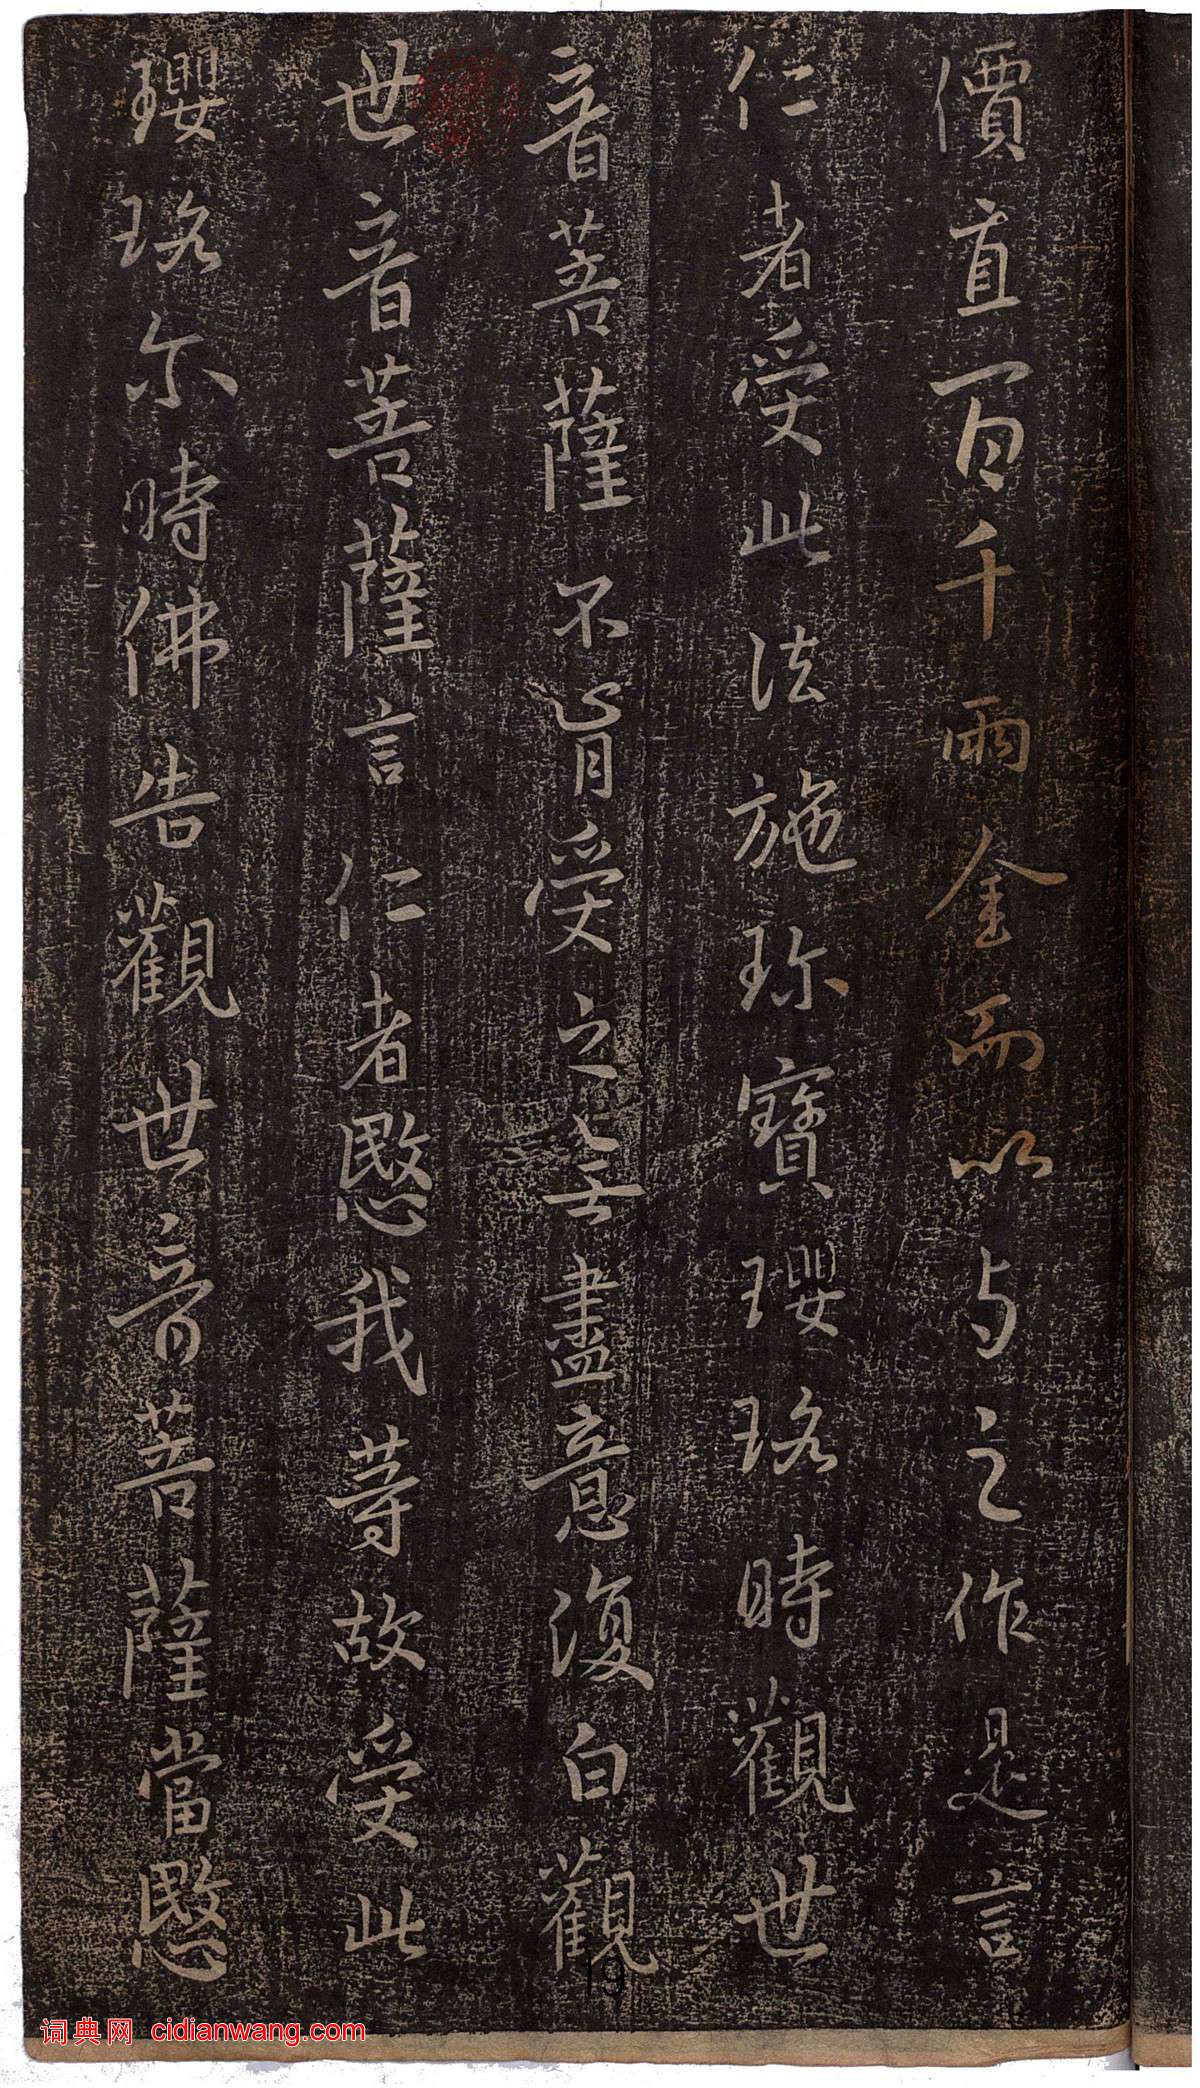 價直百千兩金而以与之作是言
仁者受此法施珎寶瓔珞時觀世
音菩薩不肯受之无盡意復白觀
世音菩薩言仁者愍我等故受此
瓔珞尒時佛告觀世音菩薩當愍
19
词典网 cidianwang.com